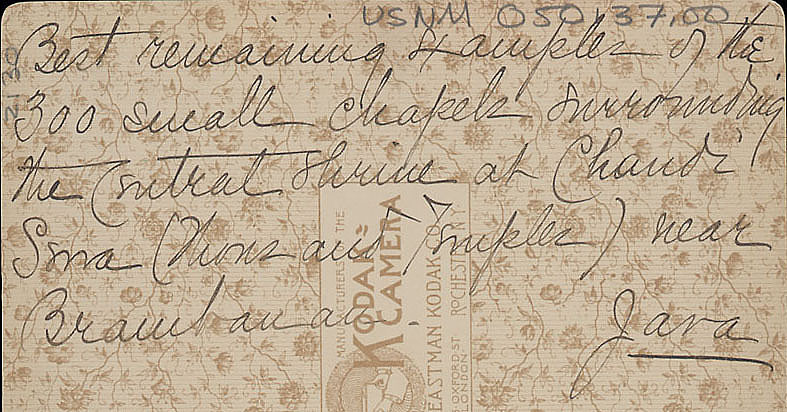 USNM 050,37,00
Best remaining examples of the
300 small chapels surrounding
the Central Shrine at Chandi
Sewa (Thousand Temples) near
Brambanan.
Java
MANUFACTURERS OF THE
KODAK
CAMERA
EASTMAN KODAK CO.
ROCHESTER
OXFORD ST
LONDON